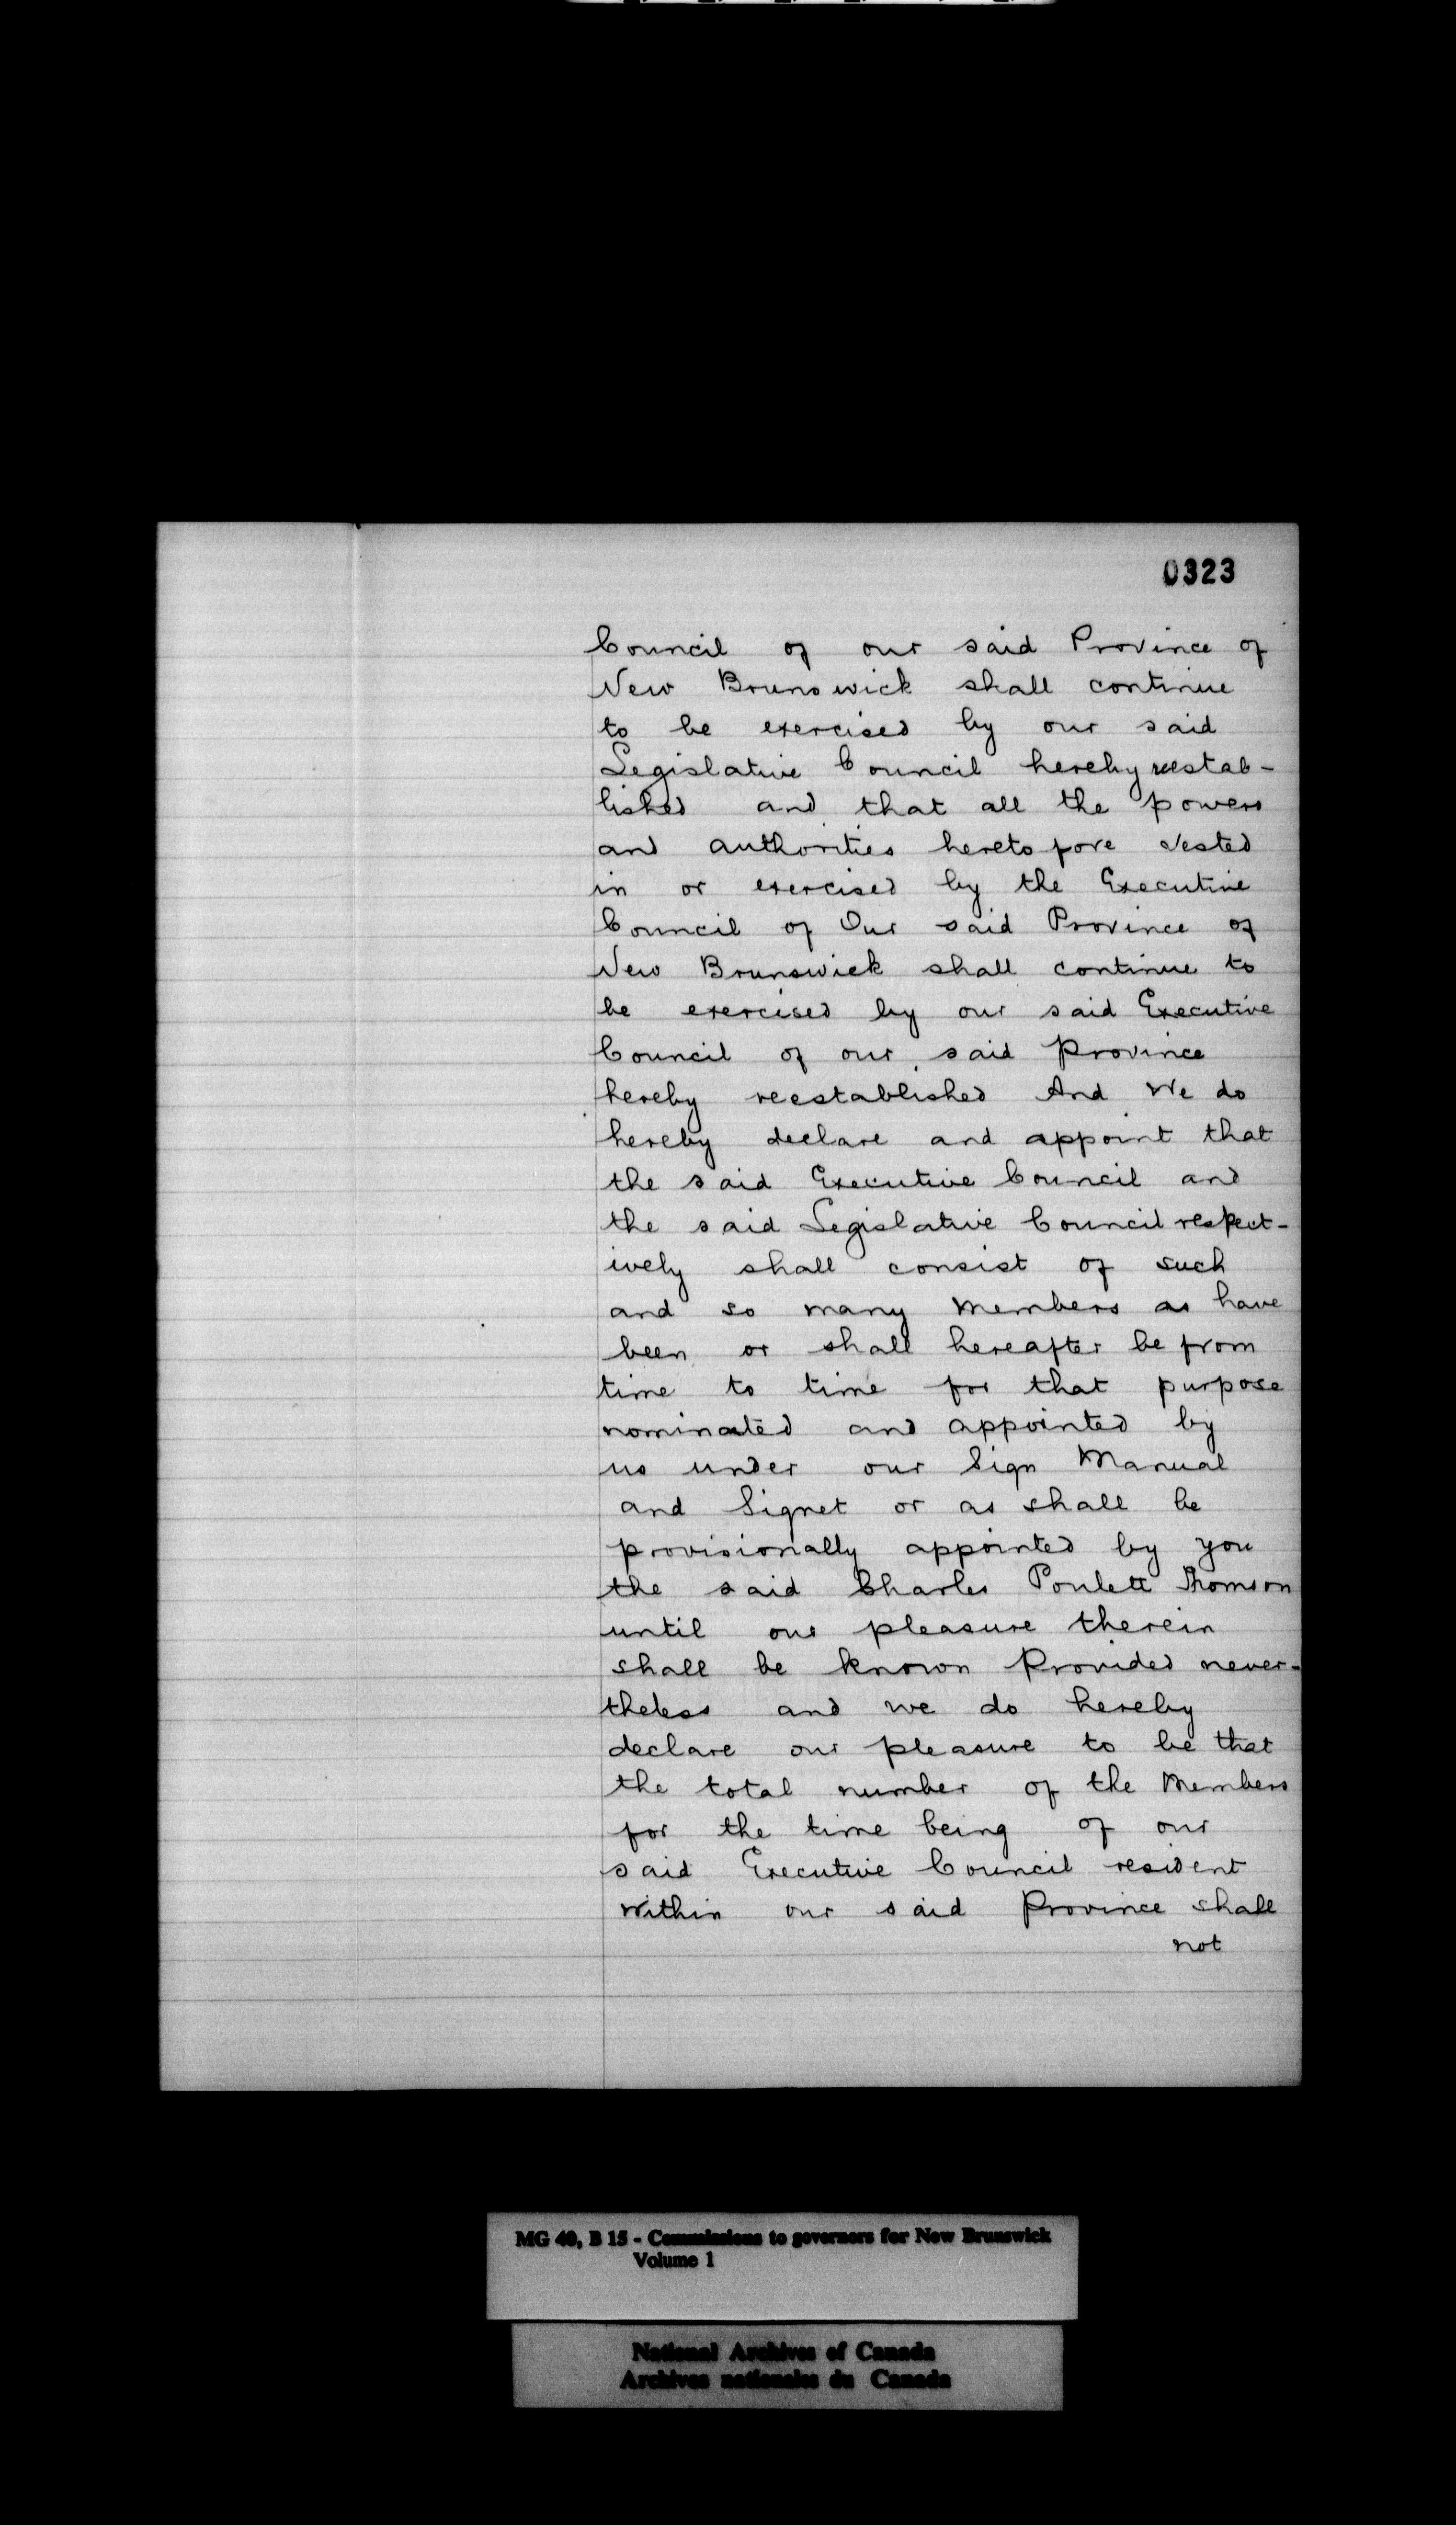 0323
Council of our said Province of
New Brunswick shall continue
to be exercised by our said
Legislative Council hereby reestab-
lished and that all the powers
and authorities heretofore vested
in or exercised by the Executive
Council of Our said Province of
New Brunswick shall continue to
be exercised by our said Executive
Council of our said Province
hereby reestablished And We do
hereby declare and appoint that
the said Executive Council and
the said Legislative Council respect-
ively shall consist of such
and so many Members as have
been or shall hereafter be from
time to time for that purpose
nominated and appointed by
us under our Sign Manual
and Signet or as shall be
provisionally appointed by you
the said Charles Poulett Thomson
until our pleasure therein
shall be known Provided never-
theless and we do hereby
declare our pleasure to be that
the total number of the Members
for the time being of our
said Executive Council resident
within our said Province shall
not
MG 40, B 15 - Commissions to governors for New Brunswick
Volume 1
National Archives of Canada
Archives nationales du Canada